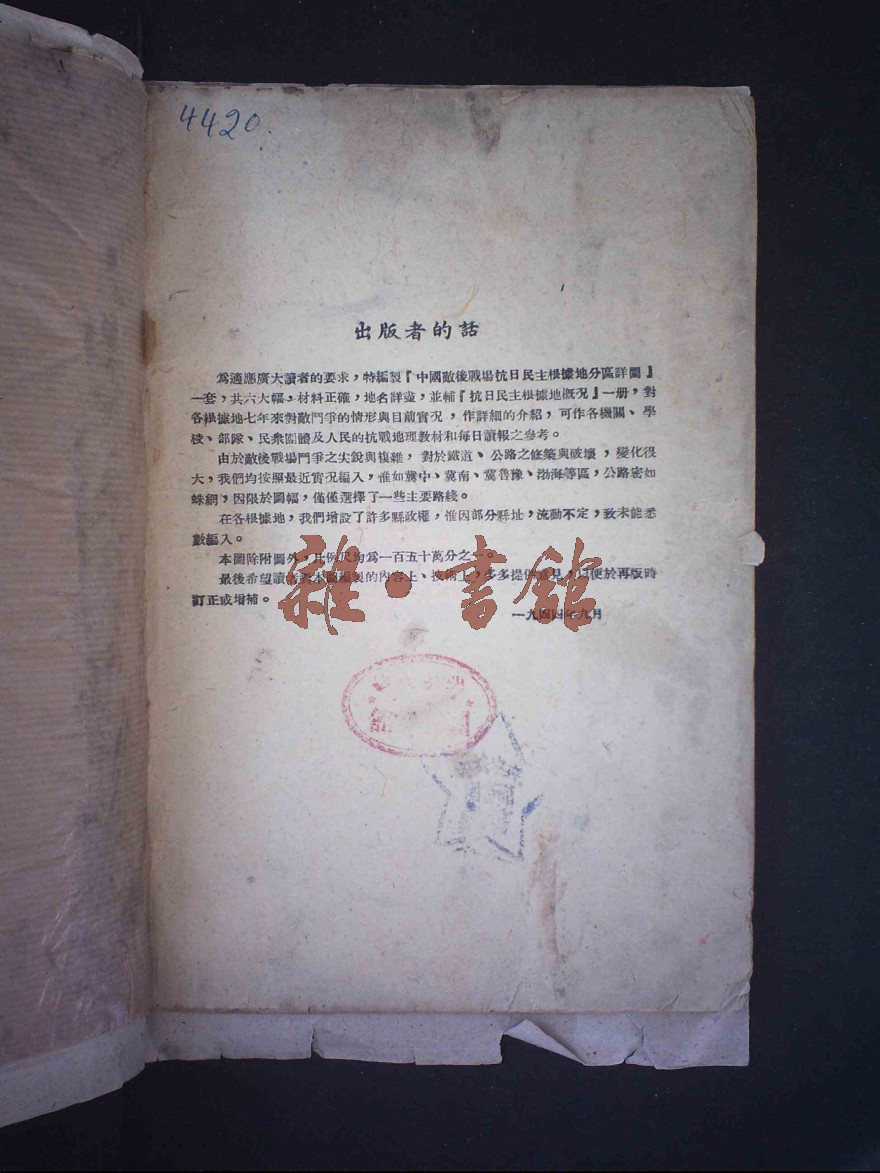 4420.
出版者的話
爲適應廣大讀者的要求，特編製『中國敵後戰場抗日民主根據地分區詳圖』
一套，共六大幅，材料正確，地名詳盡，並輔『抗日民主根據地概况』一册，對
各根據地七年來對敵鬥爭的情形與目前實况，作詳細的介紹，可作各機關、學
校、部隊、民衆團體及人民的抗戰地理教材和每日讀報之參考。
由於敵後戰場鬥爭之尖銳與複雜，對於鐵道、公路之修築與破壞，變化很
大，我們均按照最近實况編入，惟如冀中、冀南、冀魯豫、渤海等區，公路密如
蛛網，因限於圖幅，僅僅選擇了一些主要路綫。
在各根據地，我們增設了許多縣政權，惟因部分縣址，流動不定，致未能悉
數編入。
本圖除附圖外，其例尺均爲一百五十萬分之一。
最後希望讀者對本圖編製的內容上、技術上，多多提供意見，以便於再版時
訂正或增補。
一九四四年九月
雜·書館